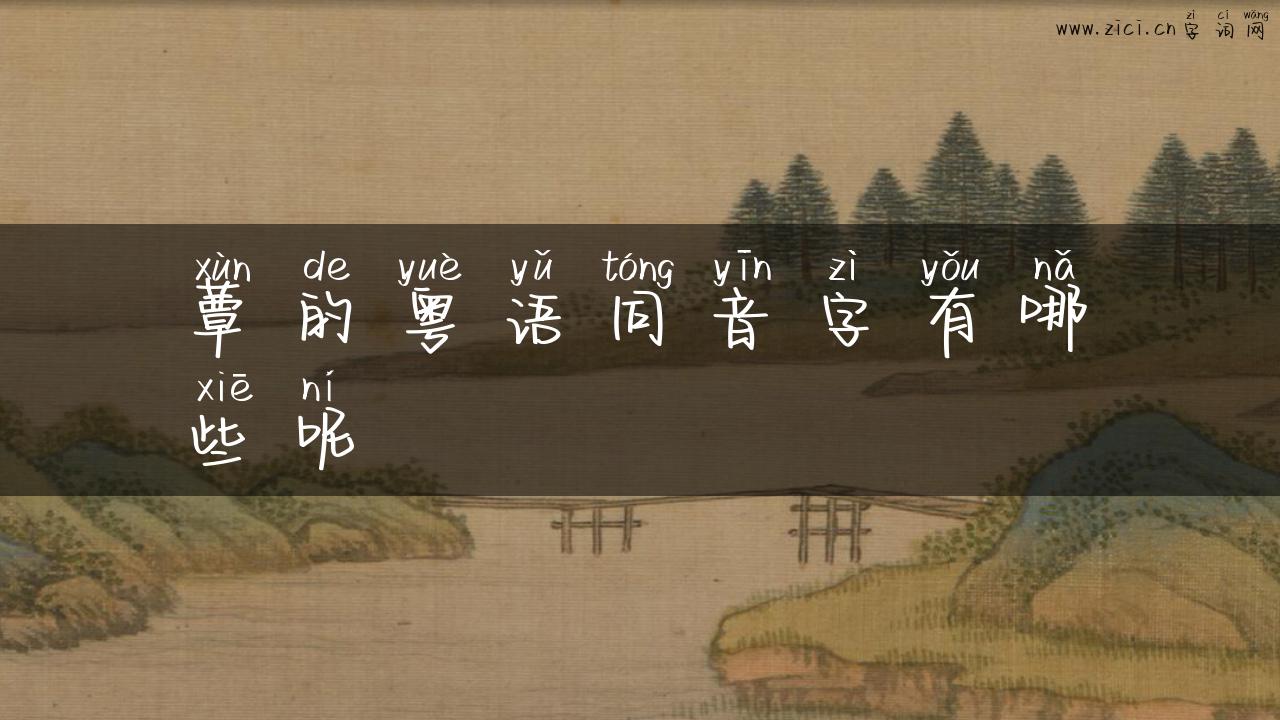 zì cí wǎng
www.zici.cn字词网
xùn de yuè yǔ tóng yīn zì yǒu nǎ
蕈的粤语同音字有哪
xiē ní
些呢